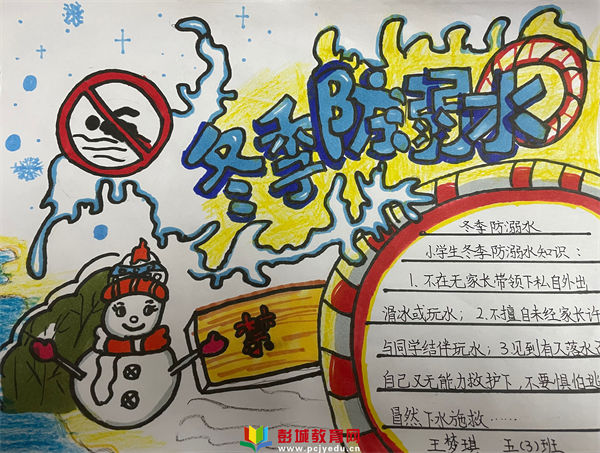 冬季防溺水
禁
冬季防溺水
小学生冬季防溺水知识：
1.不在无家长带领下私自外出
滑水或玩水；2.不擅自未经家长许
与同学结伴玩水；3见到有人落水
自己又无能力救护下，不要惧怕
冒然下水施救……
王梦琪 五(3)班
彭城教育网
www.pcjyedu.cn